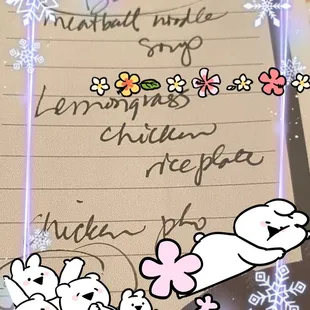 meatball noodle
soup
Lemongrass
chicken
rice plate
chicken pho